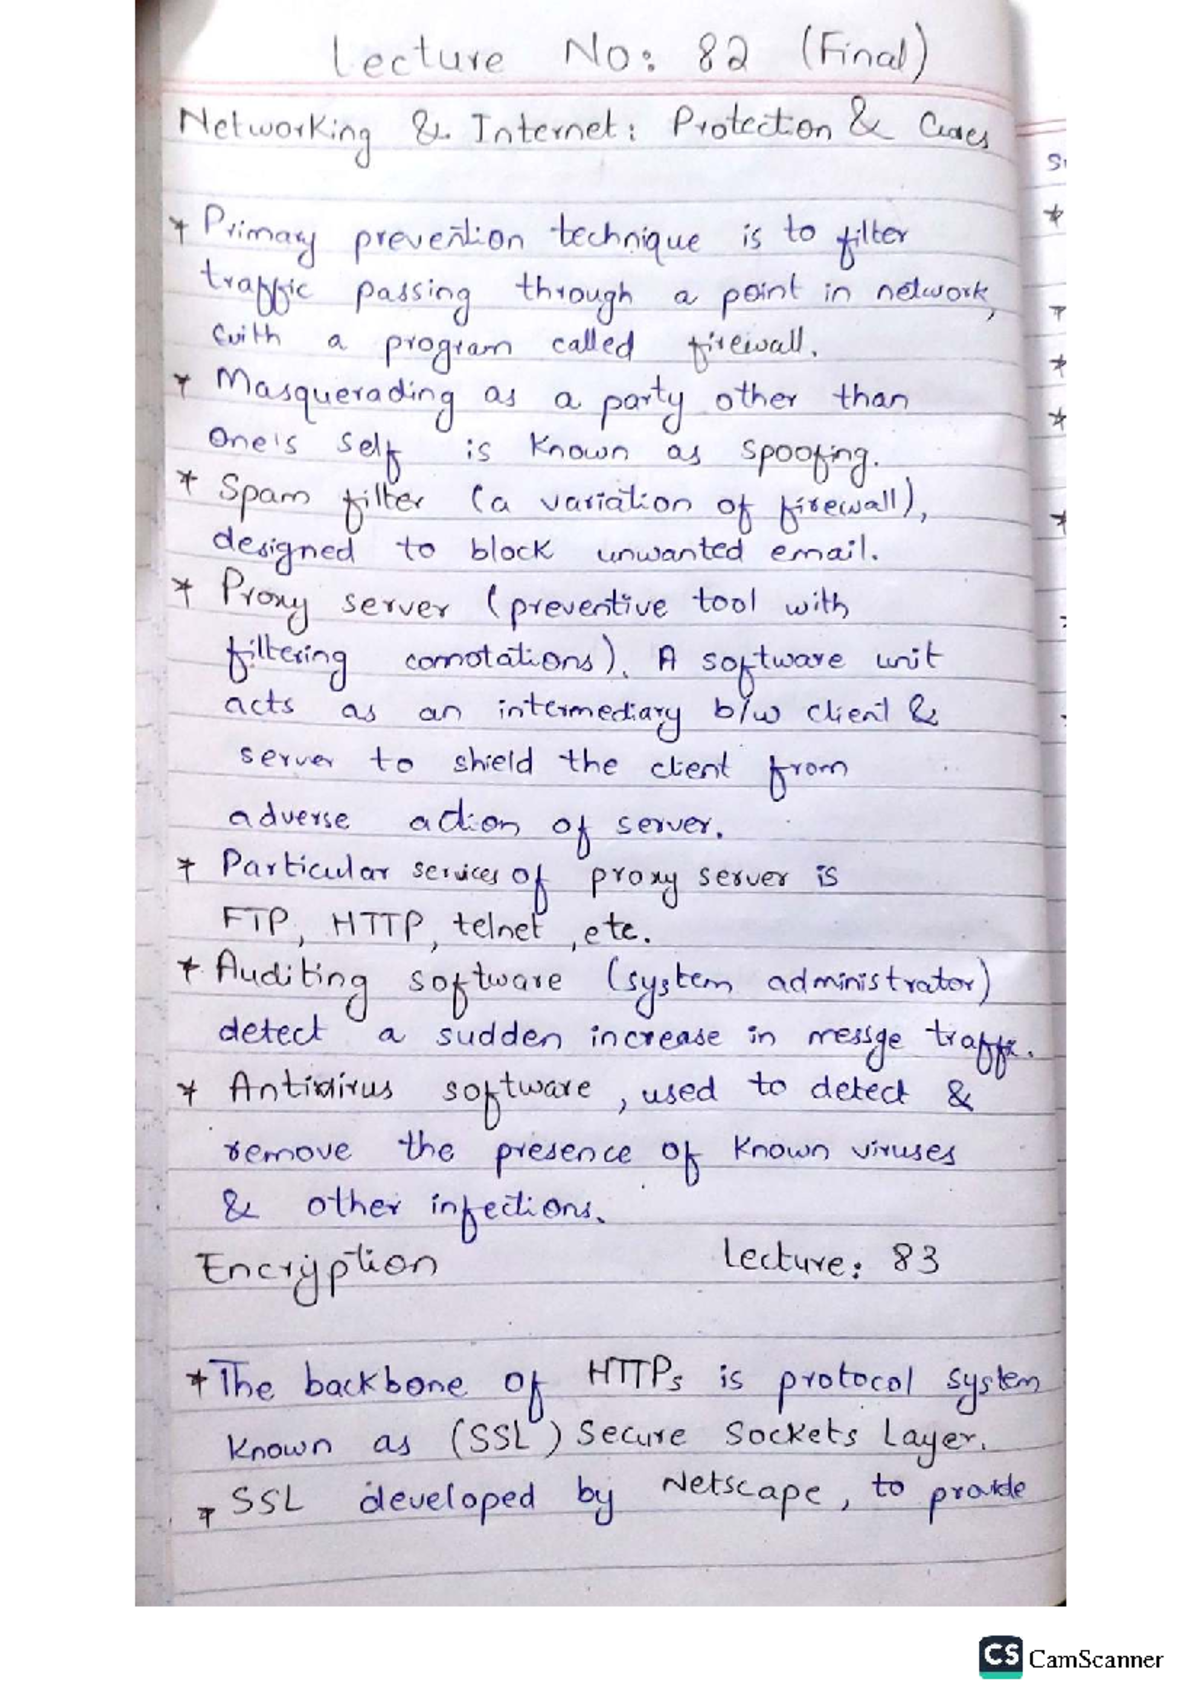 Lecture No: 82 (Final)
Networking & Internet: Protection & Cures
* Primary prevention technique is to filter
traffic passing through a point in network,
with a program called firewall.
* Masquerading as a party other than
one's self is known as spoofing.
* Spam filter (a variation of firewall),
designed to block unwanted email.
* Proxy server (preventive tool with
filtering connotations). A software unit
acts as an intermediary b/w client &
server to shield the client from
adverse action of server.
* Particular services of proxy server is
FTP, HTTP, telnet, etc.
* Auditing software (system administrator)
detect a sudden increase in messge traffic.
* Antivirus software, used to detect &
remove the presence of known viruses
& other infections.
Encryption Lecture: 83
* The backbone of HTTPs is protocol system
known as (SSL) Secure Sockets Layer.
* SSL developed by Netscape, to provide
CS CamScanner